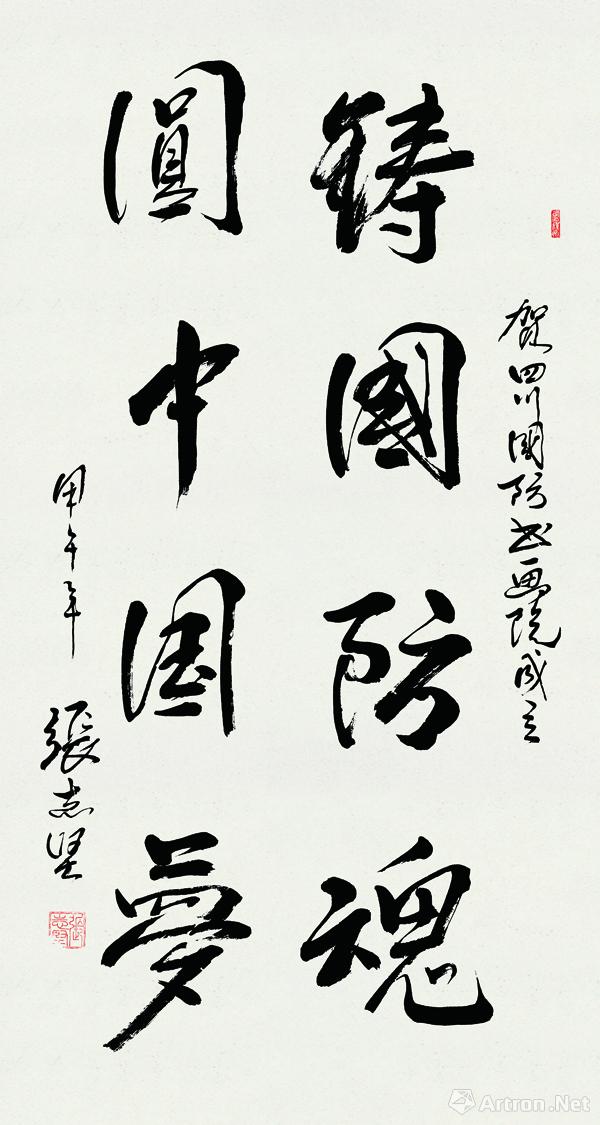 賀四川國防书画院成立
鑄國防魂
圓中国夢
甲午年
張志坚
Artron.Net